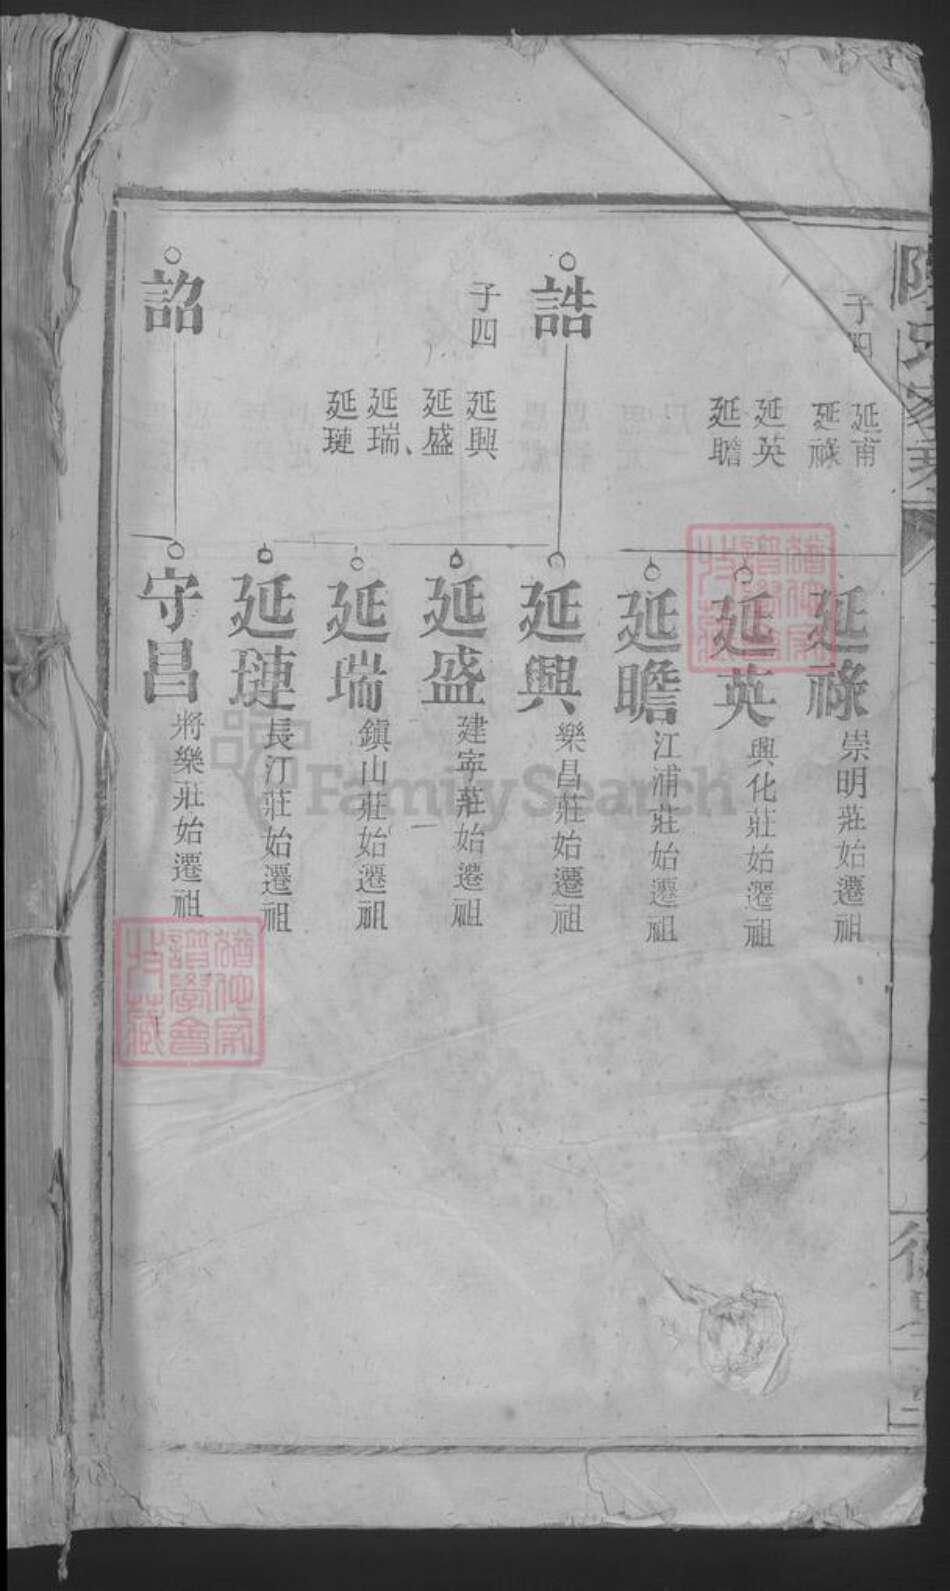 子四
延甫
延祿
延英
延瞻
誥
子四
延興
延盛
延瑞
延璉
詔
延祿
崇明莊始遷祖
延英
興化莊始遷祖
延瞻
江浦莊始遷祖
延興
樂昌莊始遷祖
延盛
建寧莊始遷祖
延瑞
鎮山莊始遷祖
延璉
長汀莊始遷祖
守昌
將樂莊始遷祖
FamilySearch